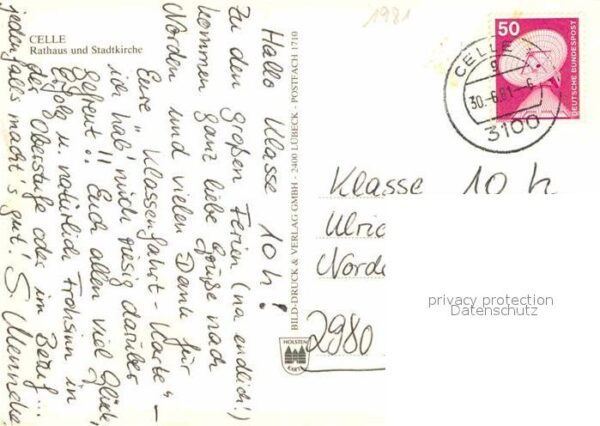 CELLE
Rathaus und Stadtkirche
Hallo Klasse 10 h!
Zu den großen Ferien (na endlich!)
kommen ganz liebe Grüße nach
Norden und vielen Dank für
Eure "Klassenfahrt-Karte" –
ich hab' mich riesig darüber
gefreut!! Euch allen viel Glück,
Erfolg u. natürlich Frohsinn in
der Oberstufe oder im Beruf...
jedenfalls macht's gut! S.
BILD-DRUCK & VERLAG GMBH · 2400 LÜBECK · POSTFACH 1710
HOLSTEN
KARTE
1981
50
DEUTSCHE BUNDESPOST
CELLE
30.-6.81.-6
3100
Klasse 10 h
Ulric
Norde
2980
privacy protection
Datenschutz